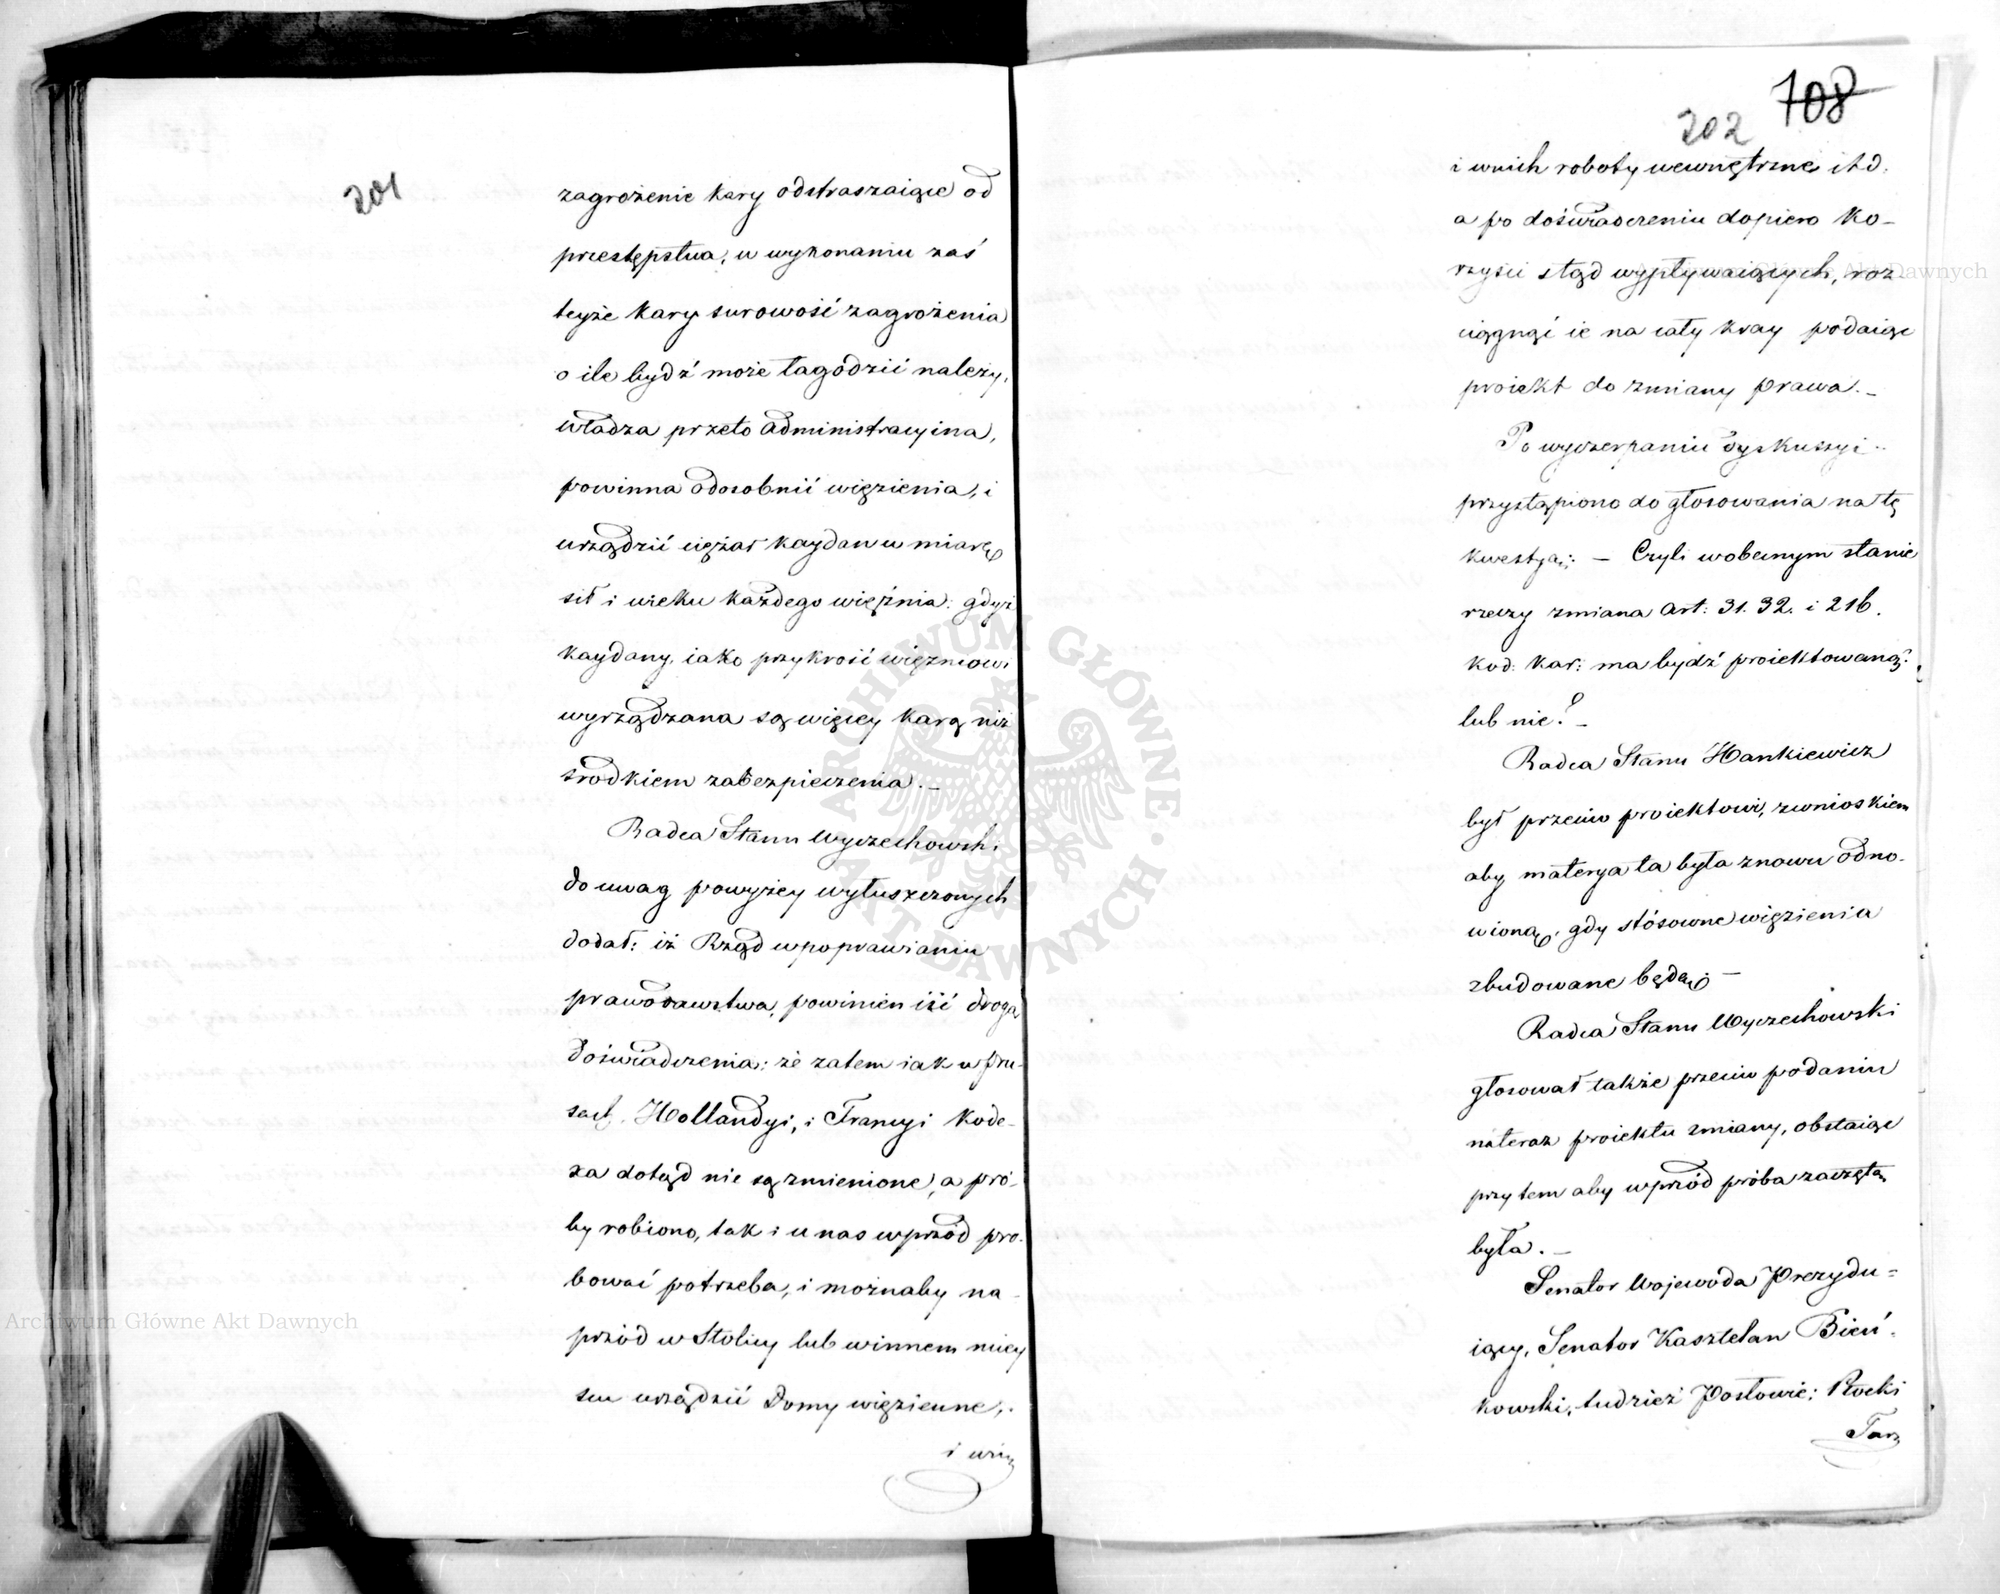 201
zagrożenie kary odstraszaiące od
przestępstwa, w wykonaniu zaś
teyże kary surowość zagrożenia
o ile bydź może łagodzić należy,
władza przeto administracyina,
powinna odosobnić więzienia, i
urządzić ciężar kaydan w miarę
sił i wieku każdego więźnia: gdyż
kaydany, iako przykrość więzniowi
wyrządzana są więcey karą niż
środkiem zabezpieczenia._
Radca Stanu Wyczechowski
do uwag powyżey wyłuszczonych
dodał: iż Rząd w poprawianiu
prawodawstwa, powinien iść drogą
doświadczenia: że zatem iak w Pru-
sach, Hollandyi, i Francyi kode-
xa dotąd nie są zmienione, a pró-
by robiono, tak i u nas wprzód pró-
bować potrzeba, i możnaby na-
przód w Stolicy lub w innem miey
scu urządzić Domy więzienne,
i w
708
202
i w nich roboty wewnętrzne itd.
a po doświadczeniu dopiero ko-
rzyści stąd wypływaiących, roz
ciągnąć ie na cały kray podaiąc
proiekt do zmiany prawa._
Po wyczerpaniu dyskussyi
przystąpiono do głosowania na tę
kwestyą: — Czyli w obecnym stanie
rzeczy zmiana art: 31. 32. i 216.
kod: kar: ma bydź proiektowaną
lub nie?_
Radca Stanu Hankiewicz
był przeciw proiektowi, z wnioskiem
aby materya ta była znowu odno-
wioną, gdy stósowne więzienia
zbudowane będą —
Radca Stanu Wyczechowski
głosował także przeciw podaniu
nateraz proiektu zmiany, obstaiąc
przytem aby wprzód próba zaczętą
była._
Senator Wojewoda Prezydu=
iący, Senator Kasztelan Bień-
kowski, tudzież Posłowie: Płocki
Tar
Archiwum Główne Akt Dawnych
Archiwum Główne Akt Dawnych
ARCHIWUM GŁÓWNE · AKT DAWNYCH ·